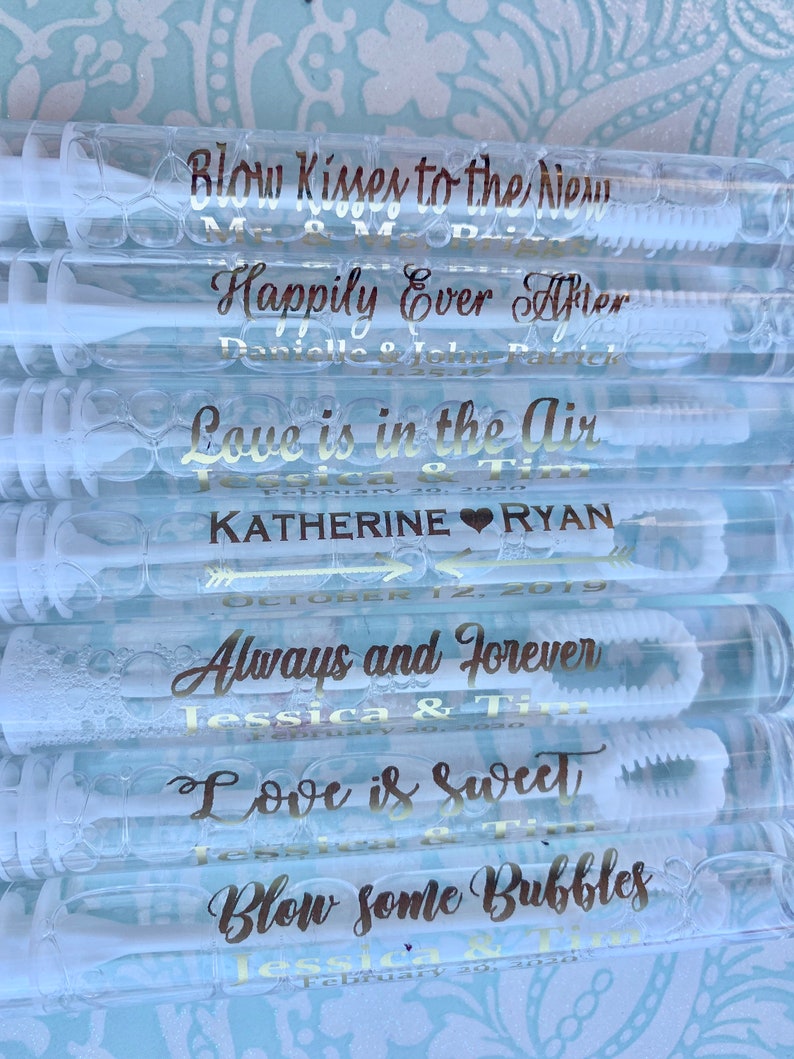 Blow Kisses to the New
Mr. & Ms. Briggs
Happily Ever After
Danielle & John-Patrick
11.25.17
Love is in the Air
Jessica & Tim
February 29, 2020
KATHERINE ♥ RYAN
OCTOBER 12, 2019
Always and Forever
Jessica & Tim
February 29, 2020
Love is sweet
Jessica & Tim
Blow some Bubbles
Jessica & Tim
February 29, 2020